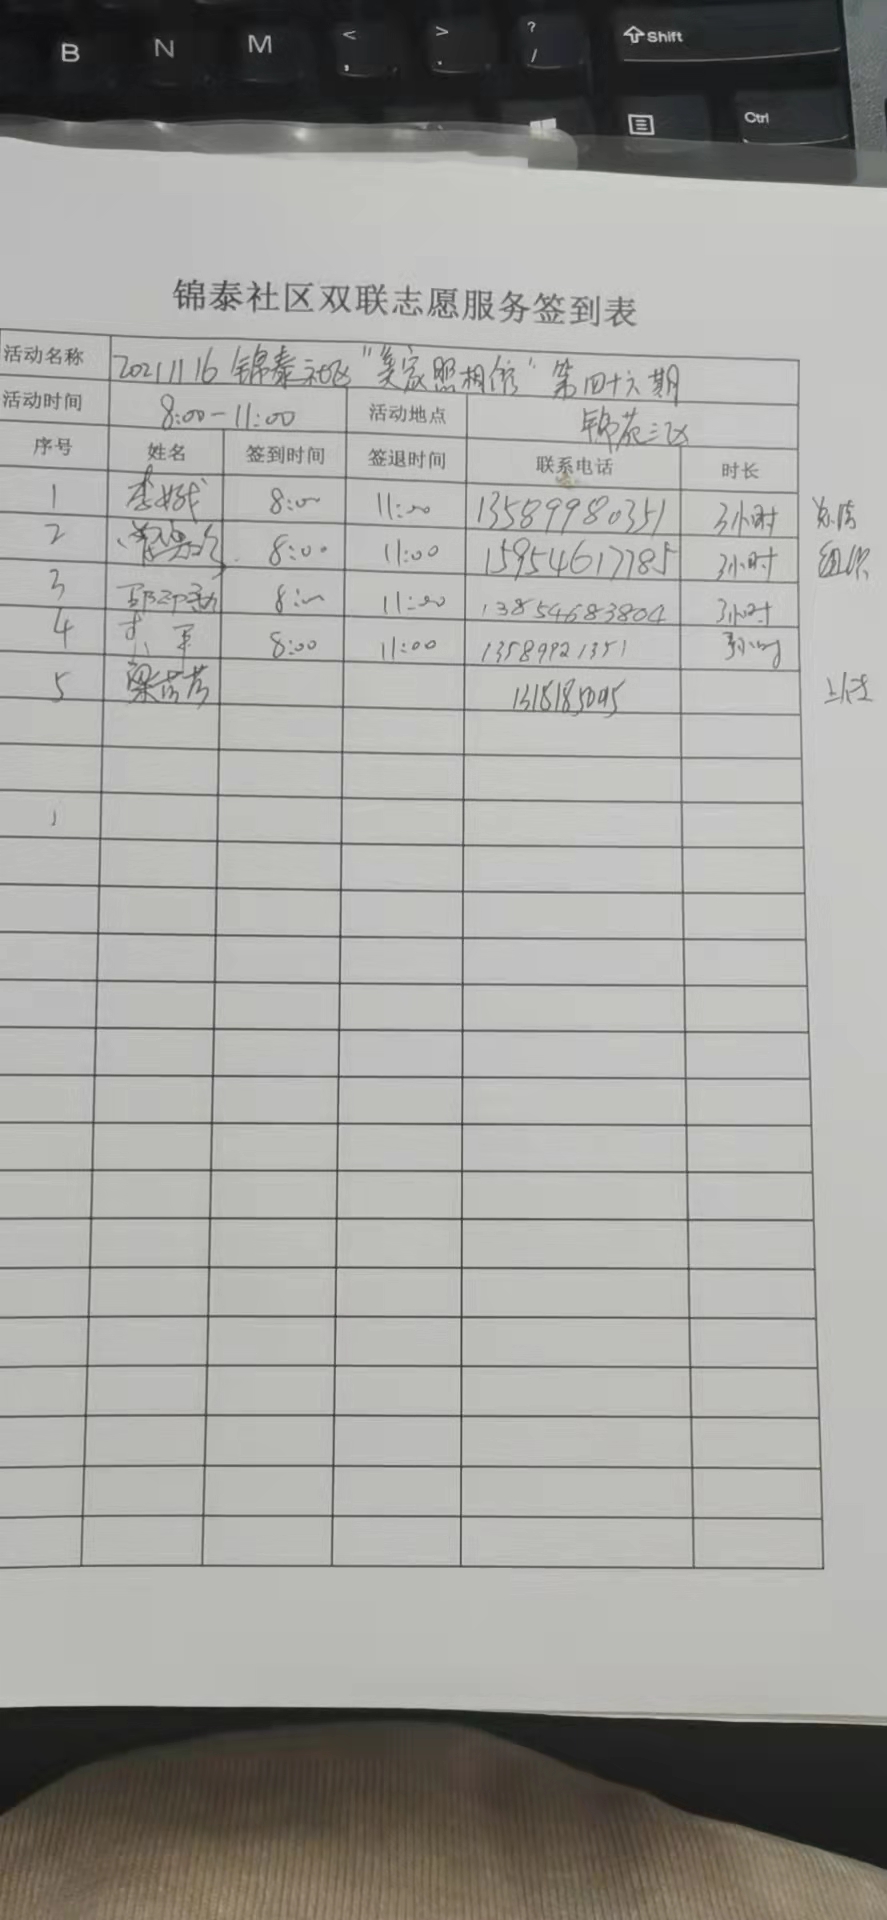 B N M < , > . ? / Shift
Ctrl
锦泰社区双联志愿服务签到表
活动名称 20211116 锦泰社区"美家照相馆"第四十六期
活动时间 8:00-11:00 活动地点 锦苑三区
序号 姓名 签到时间 签退时间 联系电话 时长
1 8:00 11:00 13589980351 3小时
2 8:00 11:00 15954617785 3小时 组织
3 8:00 11:00 13854683804 3小时
4 军 8:00 11:00 13589921351 3小时
5 梁芳芳